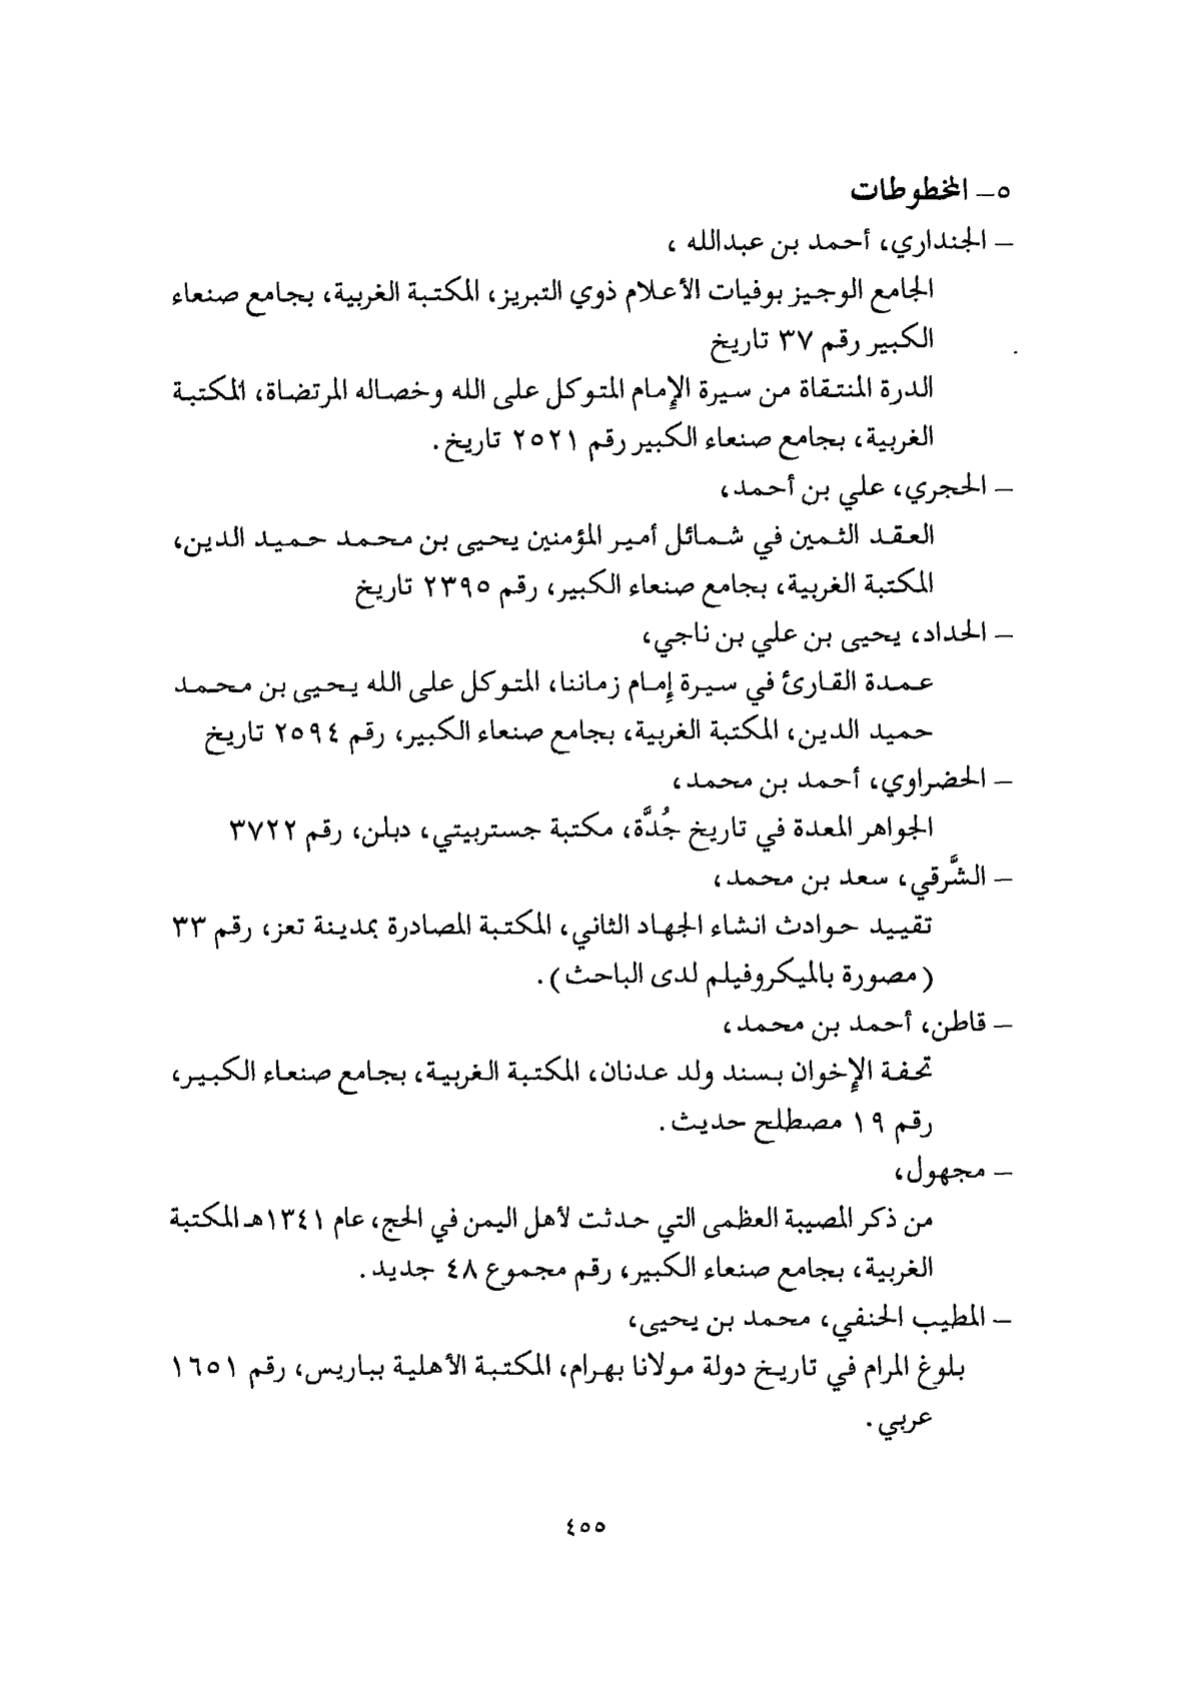 ٥ـ المخطوطات
ـ الجنداري، أحمد بن عبدالله ،
الجامع الوجيز بوفيات الأعلام ذوي التبريز، المكتبة الغربية، بجامع صنعاء
الكبير رقم ٣٧ تاريخ
الدرة المنتقاة من سيرة الإمام المتوكل على الله وخصاله المرتضاة، المكتبة
الغربية، بجامع صنعاء الكبير رقم ٢٥٢١ تاريخ.
ـ الحجري، علي بن أحمد،
العقد الثمين في شمائل أمير المؤمنين يحيى بن محمد حميد الدين،
المكتبة الغربية، بجامع صنعاء الكبير، رقم ٢٣٩٥ تاريخ
ـ الحداد، يحيى بن علي بن ناجي،
عمدة القارئ في سيرة إمام زماننا، المتوكل على الله يحيى بن محمد
حميد الدين، المكتبة الغربية، بجامع صنعاء الكبير، رقم ٢٥٩٤ تاريخ
ـ الحضراوي، أحمد بن محمد،
الجواهر المعدة في تاريخ جُدَّة، مكتبة جستربيتي، دبلن، رقم ٣٧٢٢
ـ الشَّرقي، سعد بن محمد،
تقييد حوادث انشاء الجهاد الثاني، المكتبة المصادرة بمدينة تعز، رقم ٣٣
(مصورة بالميكروفيلم لدى الباحث).
ـ قاطن، أحمد بن محمد،
تحفة الإخوان بسند ولد عدنان، المكتبة الغربية، بجامع صنعاء الكبير،
رقم ١٩ مصطلح حديث.
ـ مجهول،
من ذكر المصيبة العظمى التي حدثت لأهل اليمن في الحج، عام ١٣٤١هـ المكتبة
الغربية، بجامع صنعاء الكبير، رقم مجموع ٤٨ جديد.
ـ المطيب الحنفي، محمد بن يحيى،
بلوغ المرام في تاريخ دولة مولانا بهرام، المكتبة الأهلية بباريس، رقم ١٦٥١
عربي.
٤٥٥